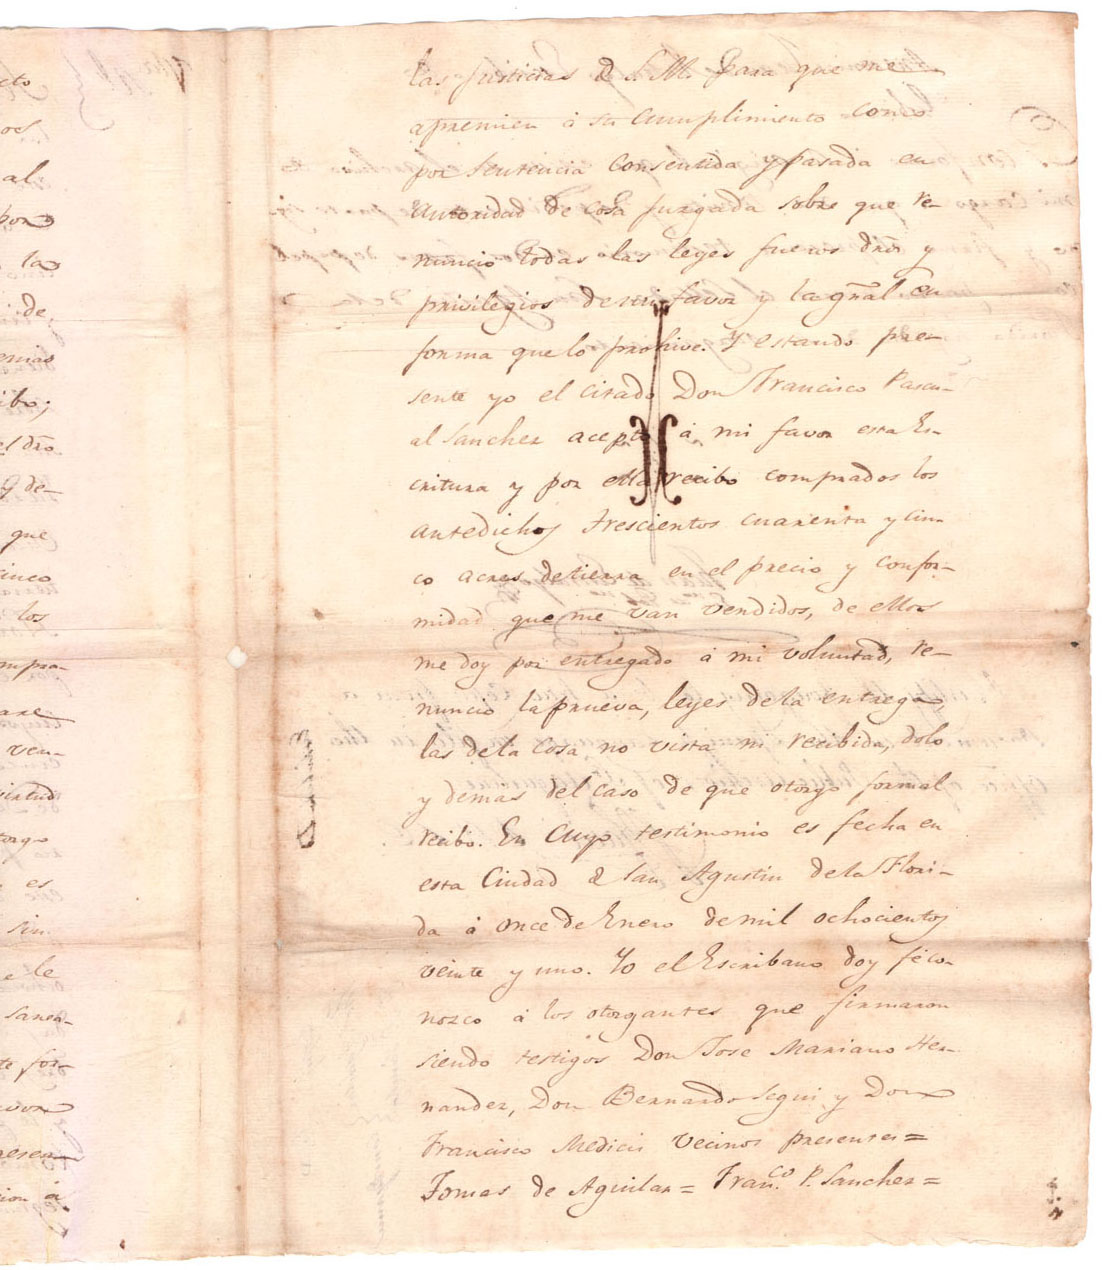 cto
os
al
por
la
de
emas
ibo;
el dro.
q de-
que
inco
los
mpra-
are
ven-
virtud
torgo
es
sin
e le
sanea-
te for-
avor
presen-
cion á
las Justicias d S.M. para que me
apremien á su cumplimiento como
por Sentencia consentida y pasada en
autoridad de cosa Juzgada sobre que re-
nuncio todas las leyes fueros dros y
privilegios de mi favor y la gral en
forma que lo prohive. Y estando pre-
sente yo el citado Don Francisco Pascu-
al Sanchez acepto á mi favor esta Es-
critura y por ella recibo comprados los
antedichos trescientos cuarenta y cin-
co acres de tierra en el precio y confor-
midad que me van vendidos, de ellos
me doy por entregado á mi voluntad, re-
nuncio la prueva, leyes de la entrega,
las de la cosa no vista ni recibida, dolo
y demas del caso de que otorgo formal
recibo. En cuyo testimonio es fecha en
esta Ciudad d San Agustin de la Flori-
da á once de Enero de mil ochocientos
veinte y uno. Yo el Escribano doy fé co-
nozco á los otorgantes que firmaron
siendo testigos Don Jose Mariano Her-
nandez, Don Bernardo Segui y Don
Francisco Medicis vecinos presentes=
Tomas de Aguilar= Fran.co P. Sanchez=